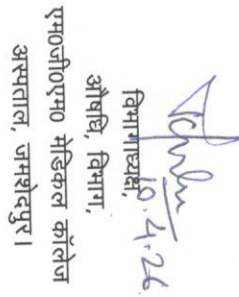 10.4.26
विभागाध्यक्ष,
औषधि, विभाग,
एम0जी0एम0 मेडिकल कॉलेज
अस्पताल, जमशेदपुर।